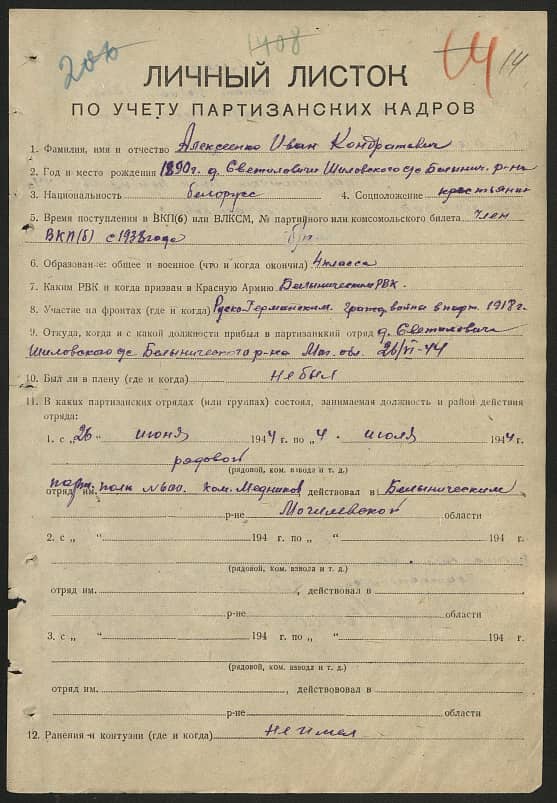 200
1408
14
ЛИЧНЫЙ ЛИСТОК
ПО УЧЕТУ ПАРТИЗАНСКИХ КАДРОВ
1. Фамилия, имя и отчество Алексеенко Иван Кондратович
2. Год и место рождения 1890 г. д. Светиловичи Шиловского с/с Белынич. р-на
3. Национальность белорус 4. Соцположение крестьянин
5. Время поступления в ВКП(б) или ВЛКСМ, № партийного или комсомольского билета член
ВКП(б) с 1938 года
6. Образование: общее и военное (что и когда окончил) 4 класса
7. Каким РВК и когда призван в Красную Армию Белыническим РВК.
8. Участие на фронтах (где и когда) Руско-Германским. гражд война 1918 г.
9. Откуда, когда и с какой должности прибыл в партизанский отряд д. Светиловичи
Шиловского с/с Белыничского р-на Мог. обл. 26/VI-44
10. Был ли в плену (где и когда) не был
11. В каких партизанских отрядах (или группах) состоял, занимаемая должность и район действия
отряда:
1. с „26“ июня 1944 г. по „4“ июля 1944 г.
рядовой
(рядовой, ком. взвода и т. д.)
отряд им. парт. полк № 600. ком. Медников действовал в Белыническим
р-не Могилевской области
2. с „ “ 194 г. по „ “ 194 г.
(рядовой, ком. взвода и т. д.)
отряд им. , действовал в
р-не области
3. с „ “ 194 г. по „ “ 194 г.
(рядовой, ком. взвода и т. д.)
отряд им. , действововал в
р-не области
12. Ранения и контузии (где и когда) не имел